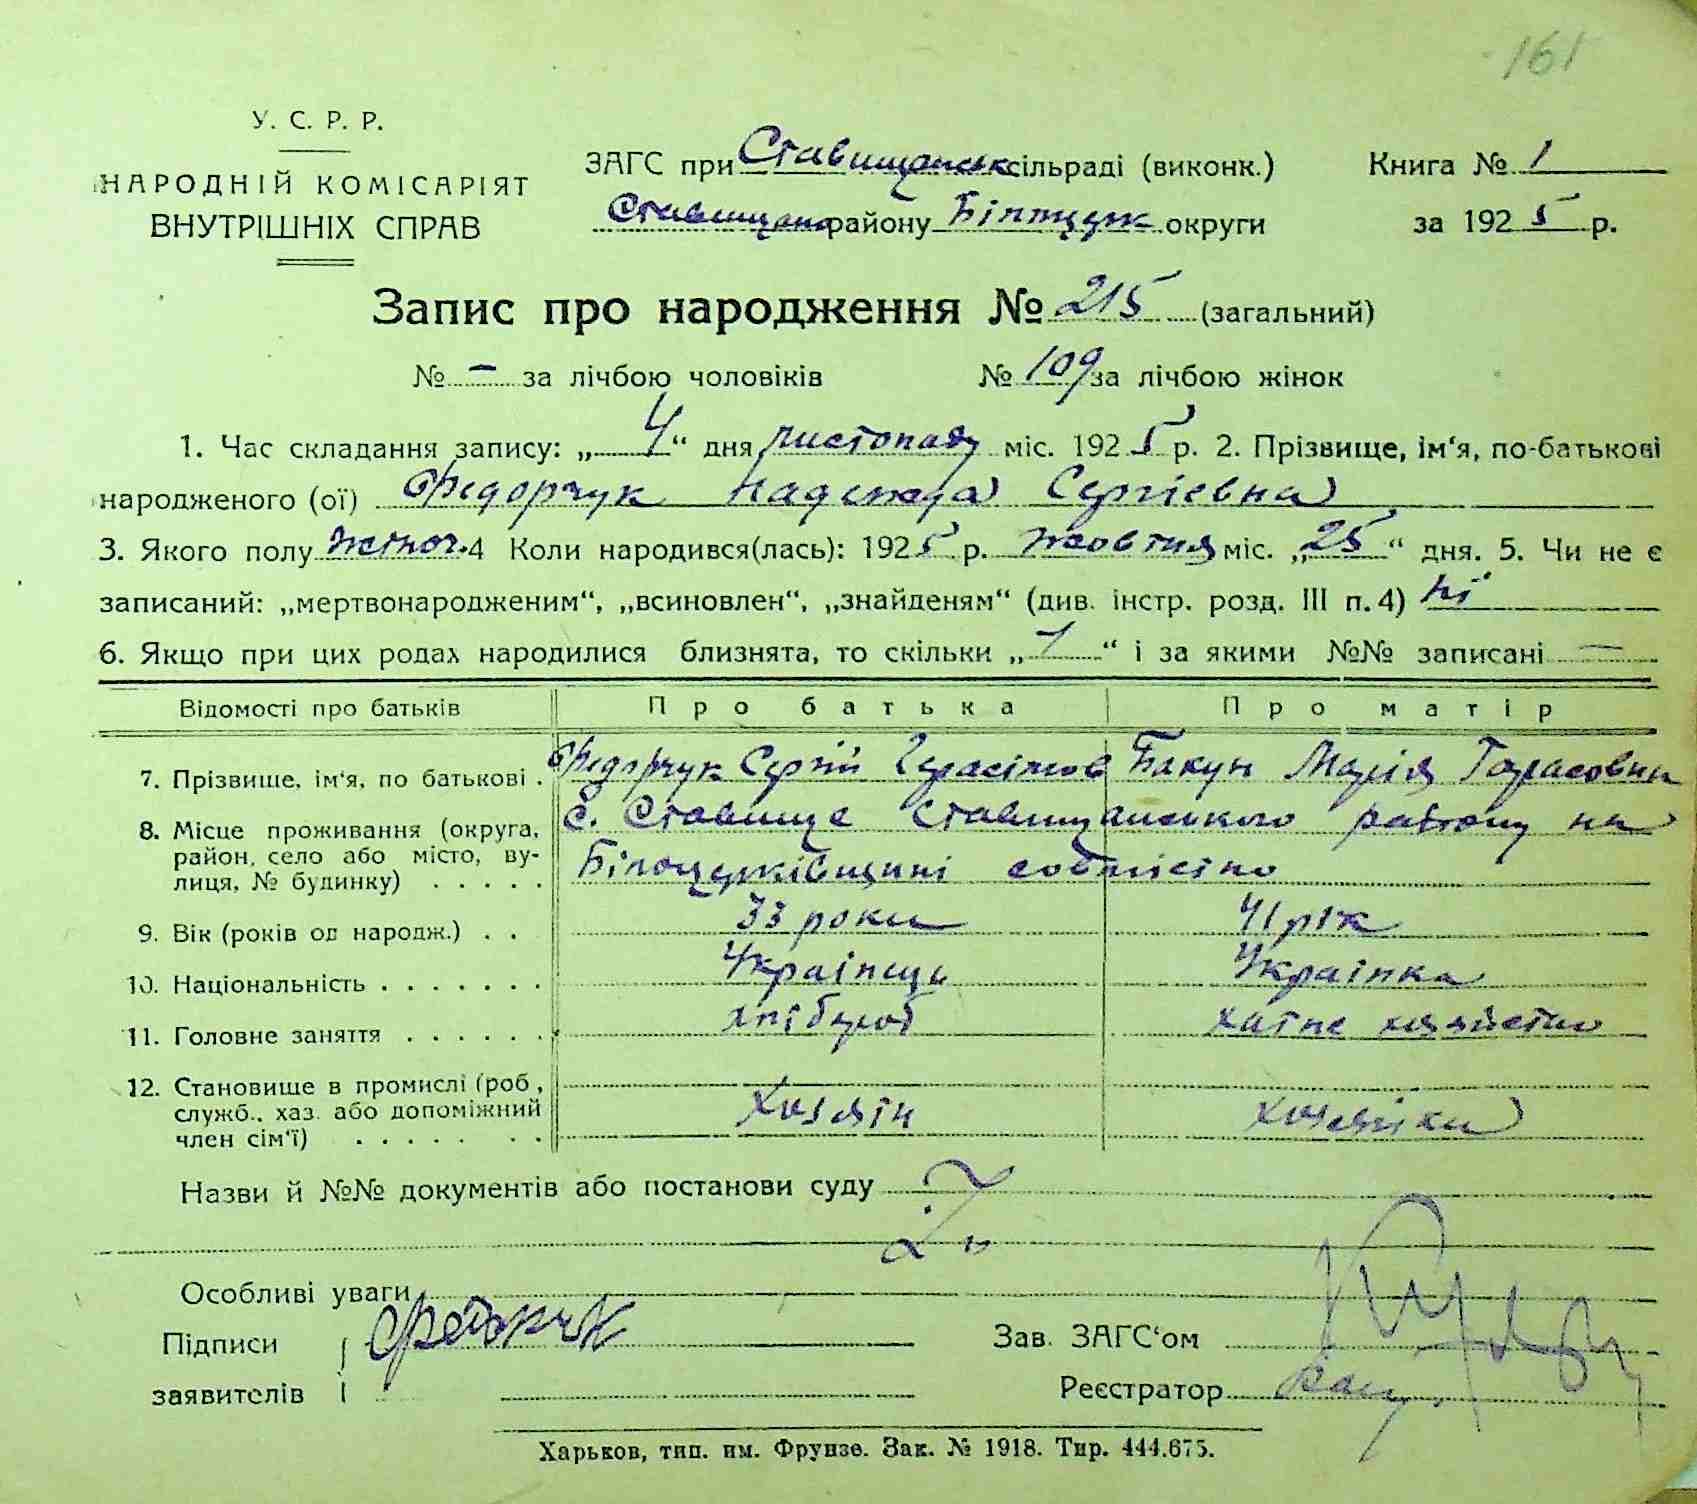 161
У. С. Р. Р.
НАРОДНІЙ КОМІСАРІЯТ
ВНУТРІШНІХ СПРАВ
ЗАГС при Ставищанськ сільраді (виконк.)
Ставищанс району Білоцерк округи
Книга № 1
за 1925 р.
Запис про народження № 215 (загальний)
№ – за лічбою чоловіків № 109 за лічбою жінок
1. Час складання запису: „4“ дня листопаду міс. 1925 р. 2. Прізвище, ім‘я, по-батькові
народженого (ої) Федорчук Надежда Сергієвна
3. Якого полу жіноч. 4 Коли народився(лась): 1925 р. жовтня міс. „25“ дня. 5. Чи не є
записаний: „мертвонародженим“, „всиновлен“, „знайденям“ (див. інстр. розд. III п. 4) ні
6. Якщо при цих родах народилися близнята, то скільки „1“ і за якими №№ записані —
Відомості про батьків Про батька Про матір
7. Прізвище, ім‘я, по батькові . Федорчук Сергій Герасімов Бакун Марія Тарасовна
8. Місце проживання (округа, район, село або місто, ву-лиця, № будинку) . . . . . с. Ставище Ставищанського району на
Білоцерківщині совмістно
9. Вік (років од народж.) . . 33 роки 41 рік
10. Національність . . . . . . . Українець Українка
11. Головне заняття . . . . . . хлібороб хатнє хозяйство
12. Становище в промислі (роб,
служб., хаз. або допоміжний
член сім‘ї) . . . . . . . Хозяін хозяйка
Назви й №№ документів або постанови суду
Особливі уваги
Підписи Федорчук Зав. ЗАГС‘ом
заявителів Реєстратор
Харьков, тип. им. Фрунзе. Зак. № 1918. Тир. 444.675.